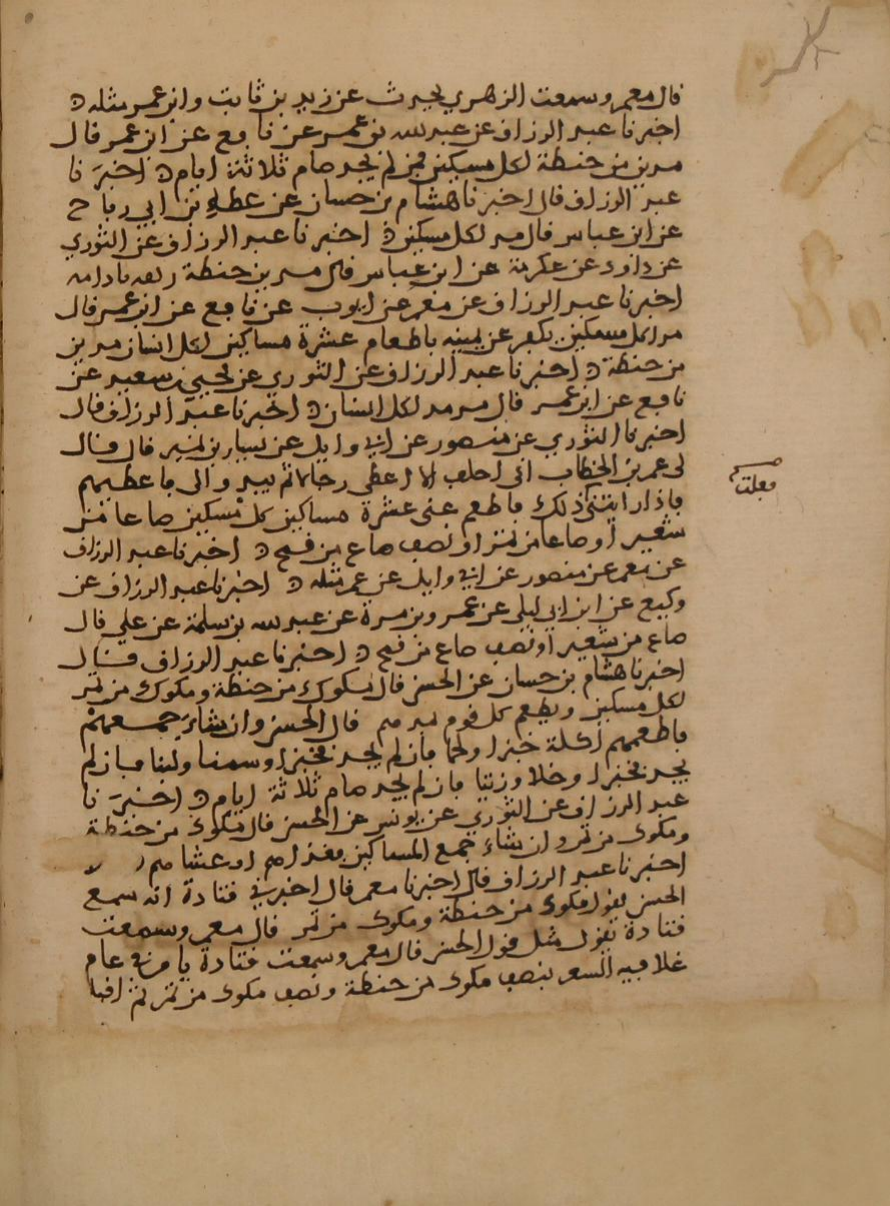 قال معمر وسمعت الزهري يحدث عن زيد بن ثابت وابن عمر مثله
اخبرنا عبد الرزاق عن عبد الله بن عمر عن نافع عن ابن عمر قال
مدين من حنطة لكل مسكين فمن لم يجد صام ثلاثة ايام اخبرنا
عبد الرزاق قال اخبرنا هشام بن حسان عن عطاء بن ابي رباح
عن ابن عباس قال مد لكل مسكين اخبرنا عبد الرزاق عن الثوري
عن داود عن عكرمة عن ابن عباس قال مد من حنطة ربعه بادامه
اخبرنا عبد الرزاق عن معمر عن ايوب عن نافع عن ابن عمر قال
يكفر عن يمينه باطعام عشرة مساكين لكل انسان مد من
من حنطة اخبرنا عبد الرزاق عن الثوري عن يحيى بن سعيد عن
نافع عن ابن عمر قال مد مد لكل انسان اخبرنا عبد الرزاق قال
اخبرنا الثوري عن منصور عن ابي وايل عن يسار بن نمير قال قال
لي عمر بن الخطاب اني احلف الا اعطي رجالا ثم يبدو الي فاعطيهم
فاذا رايتني ذلك فاطعم عني عشرة مساكين كل مسكين صاعا من
شعير او صاعا من تمر او نصف صاع من قمح اخبرنا عبد الرزاق
عن معمر عن منصور عن ابي وايل عن عمر مثله اخبرنا عبد الرزاق عن
وكيع عن ابن ابي ليلى عن عمرو بن مرة عن عبد الله بن سلمة عن علي قال
صاع من شعير او نصف صاع من قمح اخبرنا عبد الرزاق قال
اخبرنا هشام بن حسان عن الحسن قال مكوك من حنطة ومكوك من تمر
لكل مسكين ويطعم كل قوم بمدهم قال الحسن وان شاء جمعهم
فاطعمهم اكلة خبزا ولحما فان لم يجد فخبزا وسمنا ولبنا فان لم
يجد فخبزا وخلا وزيتا فان لم يجد صام ثلاثة ايام اخبرنا
عبد الرزاق عن الثوري عن يونس عن الحسن قال مكوك من حنطة
ومكوك من تمر وان شاء جمع المساكين فغداهم او عشاهم
اخبرنا عبد الرزاق قال اخبرنا معمر قال اخبرني قتادة انه سمع
الحسن يقول مكوك من حنطة ومكوك من تمر قال معمر وسمعت
قتادة يقول مثل قول الحسن قال معمر وسمعت قتادة يامر في عام
غلا فيه السعر بنصف مكوك من حنطة ونصف مكوك من تمر ثم
فعلت